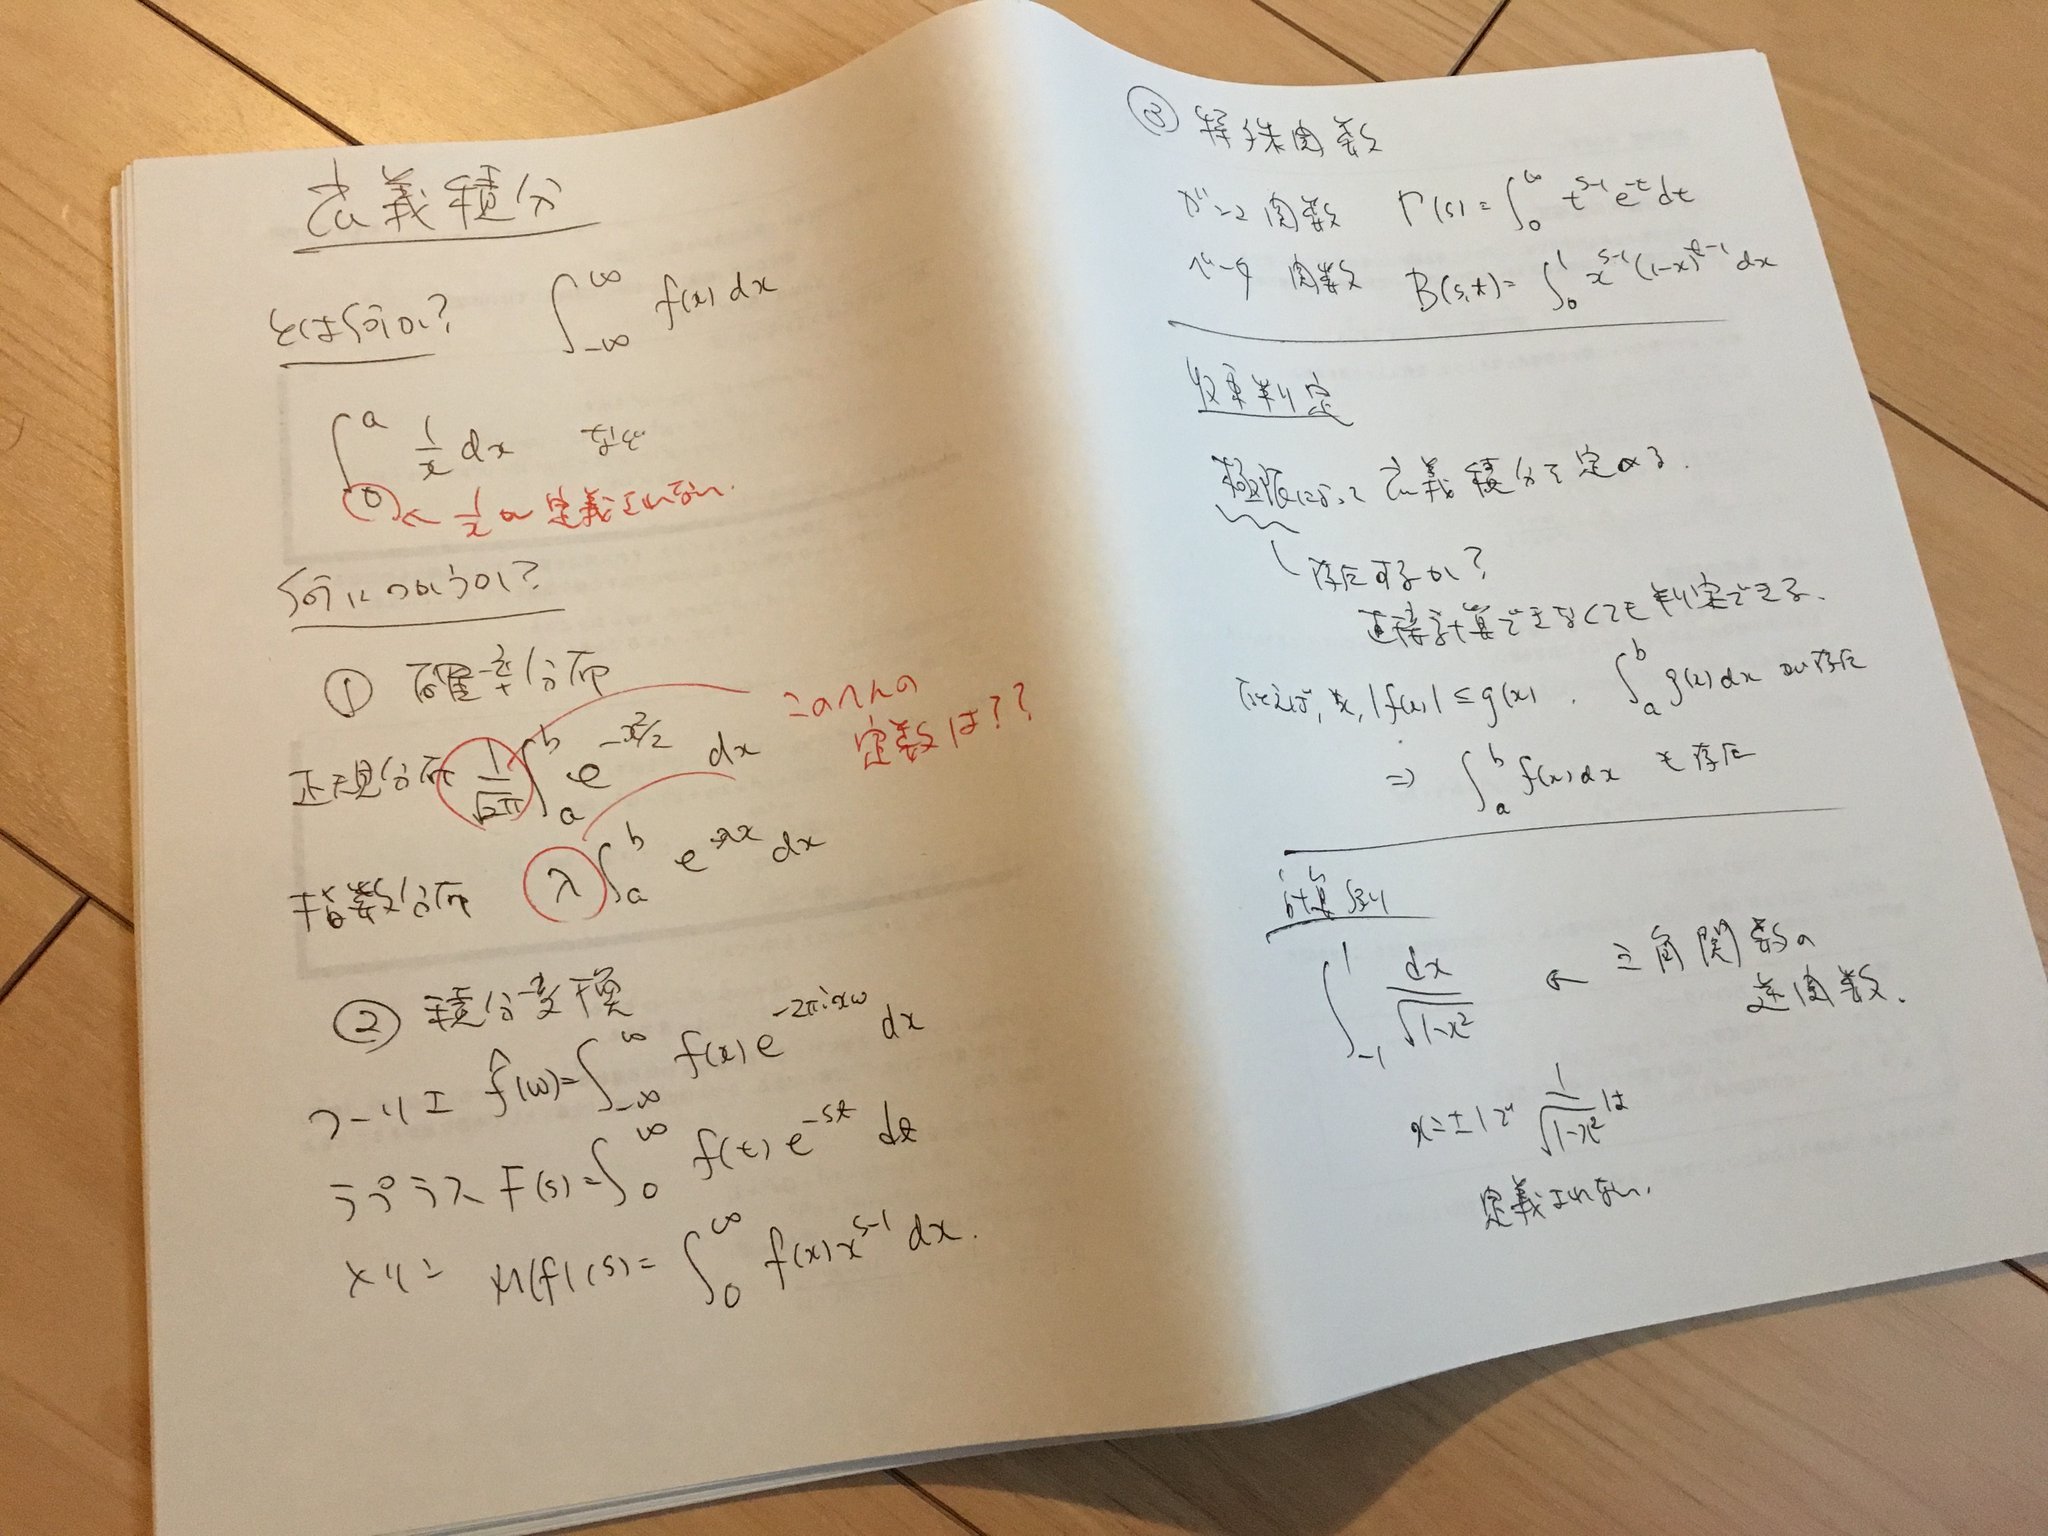 広義積分
とは何か? ∫_{-∞}^{∞} f(x) dx
∫_0^a 1/x dx など
← 1/x が定義されない.
何につかうか?
① 確率分布
正規分布 1/√2π ∫_a^b e^{-x²/2} dx
このへんの
定数は??
指数分布 λ ∫_a^b e^{-λx} dx
② 積分変換
フーリエ f̂(ω) = ∫_{-∞}^{∞} f(x) e^{-2πixω} dx
ラプラス F(s) = ∫_0^∞ f(t) e^{-st} dt
メリン M(f)(s) = ∫_0^∞ f(x) x^{s-1} dx.
③ 特殊関数
ガンマ関数 Γ(s) = ∫_0^∞ t^{s-1} e^{-t} dt
ベータ関数 B(s,t) = ∫_0^1 x^{s-1} (1-x)^{t-1} dx
収束判定
極限によって広義積分を定める.
存在するか?
直接計算できなくても判定できる.
たとえば, |f(x)| ≤ g(x), ∫_a^b g(x) dx が存在
⇒ ∫_a^b f(x) dx も存在
計算例
∫_{-1}^1 dx/√1-x² ← 三角関数の
逆関数.
x=±1で 1/√1-x² は
定義されない.